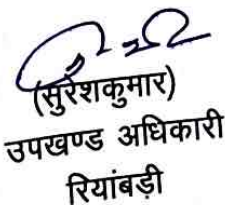 (सुरेशकुमार)
उपखण्ड अधिकारी
रियांबड़ी